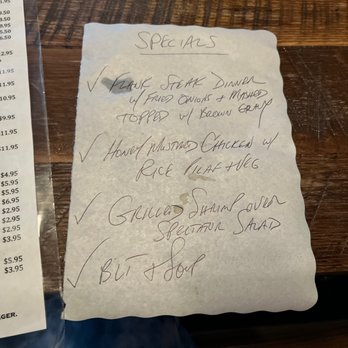 SPECIALS
✓ FLANK STEAK DINNER
w/ FRIED ONIONS + MASHED
TOPPED w/ BROWN GRAVY
✓ HONEY MUSTARD CHICKEN w/
RICE PILAF + VEG
✓ GRILLED SHRIMP OVER
SPECTATOR SALAD
✓ BLT + SOUP
$9.95
$11.95
$11.95
$4.95
$5.95
$5.95
$6.95
$2.95
$2.95
$2.95
$3.95
$5.95
$3.95
GER.